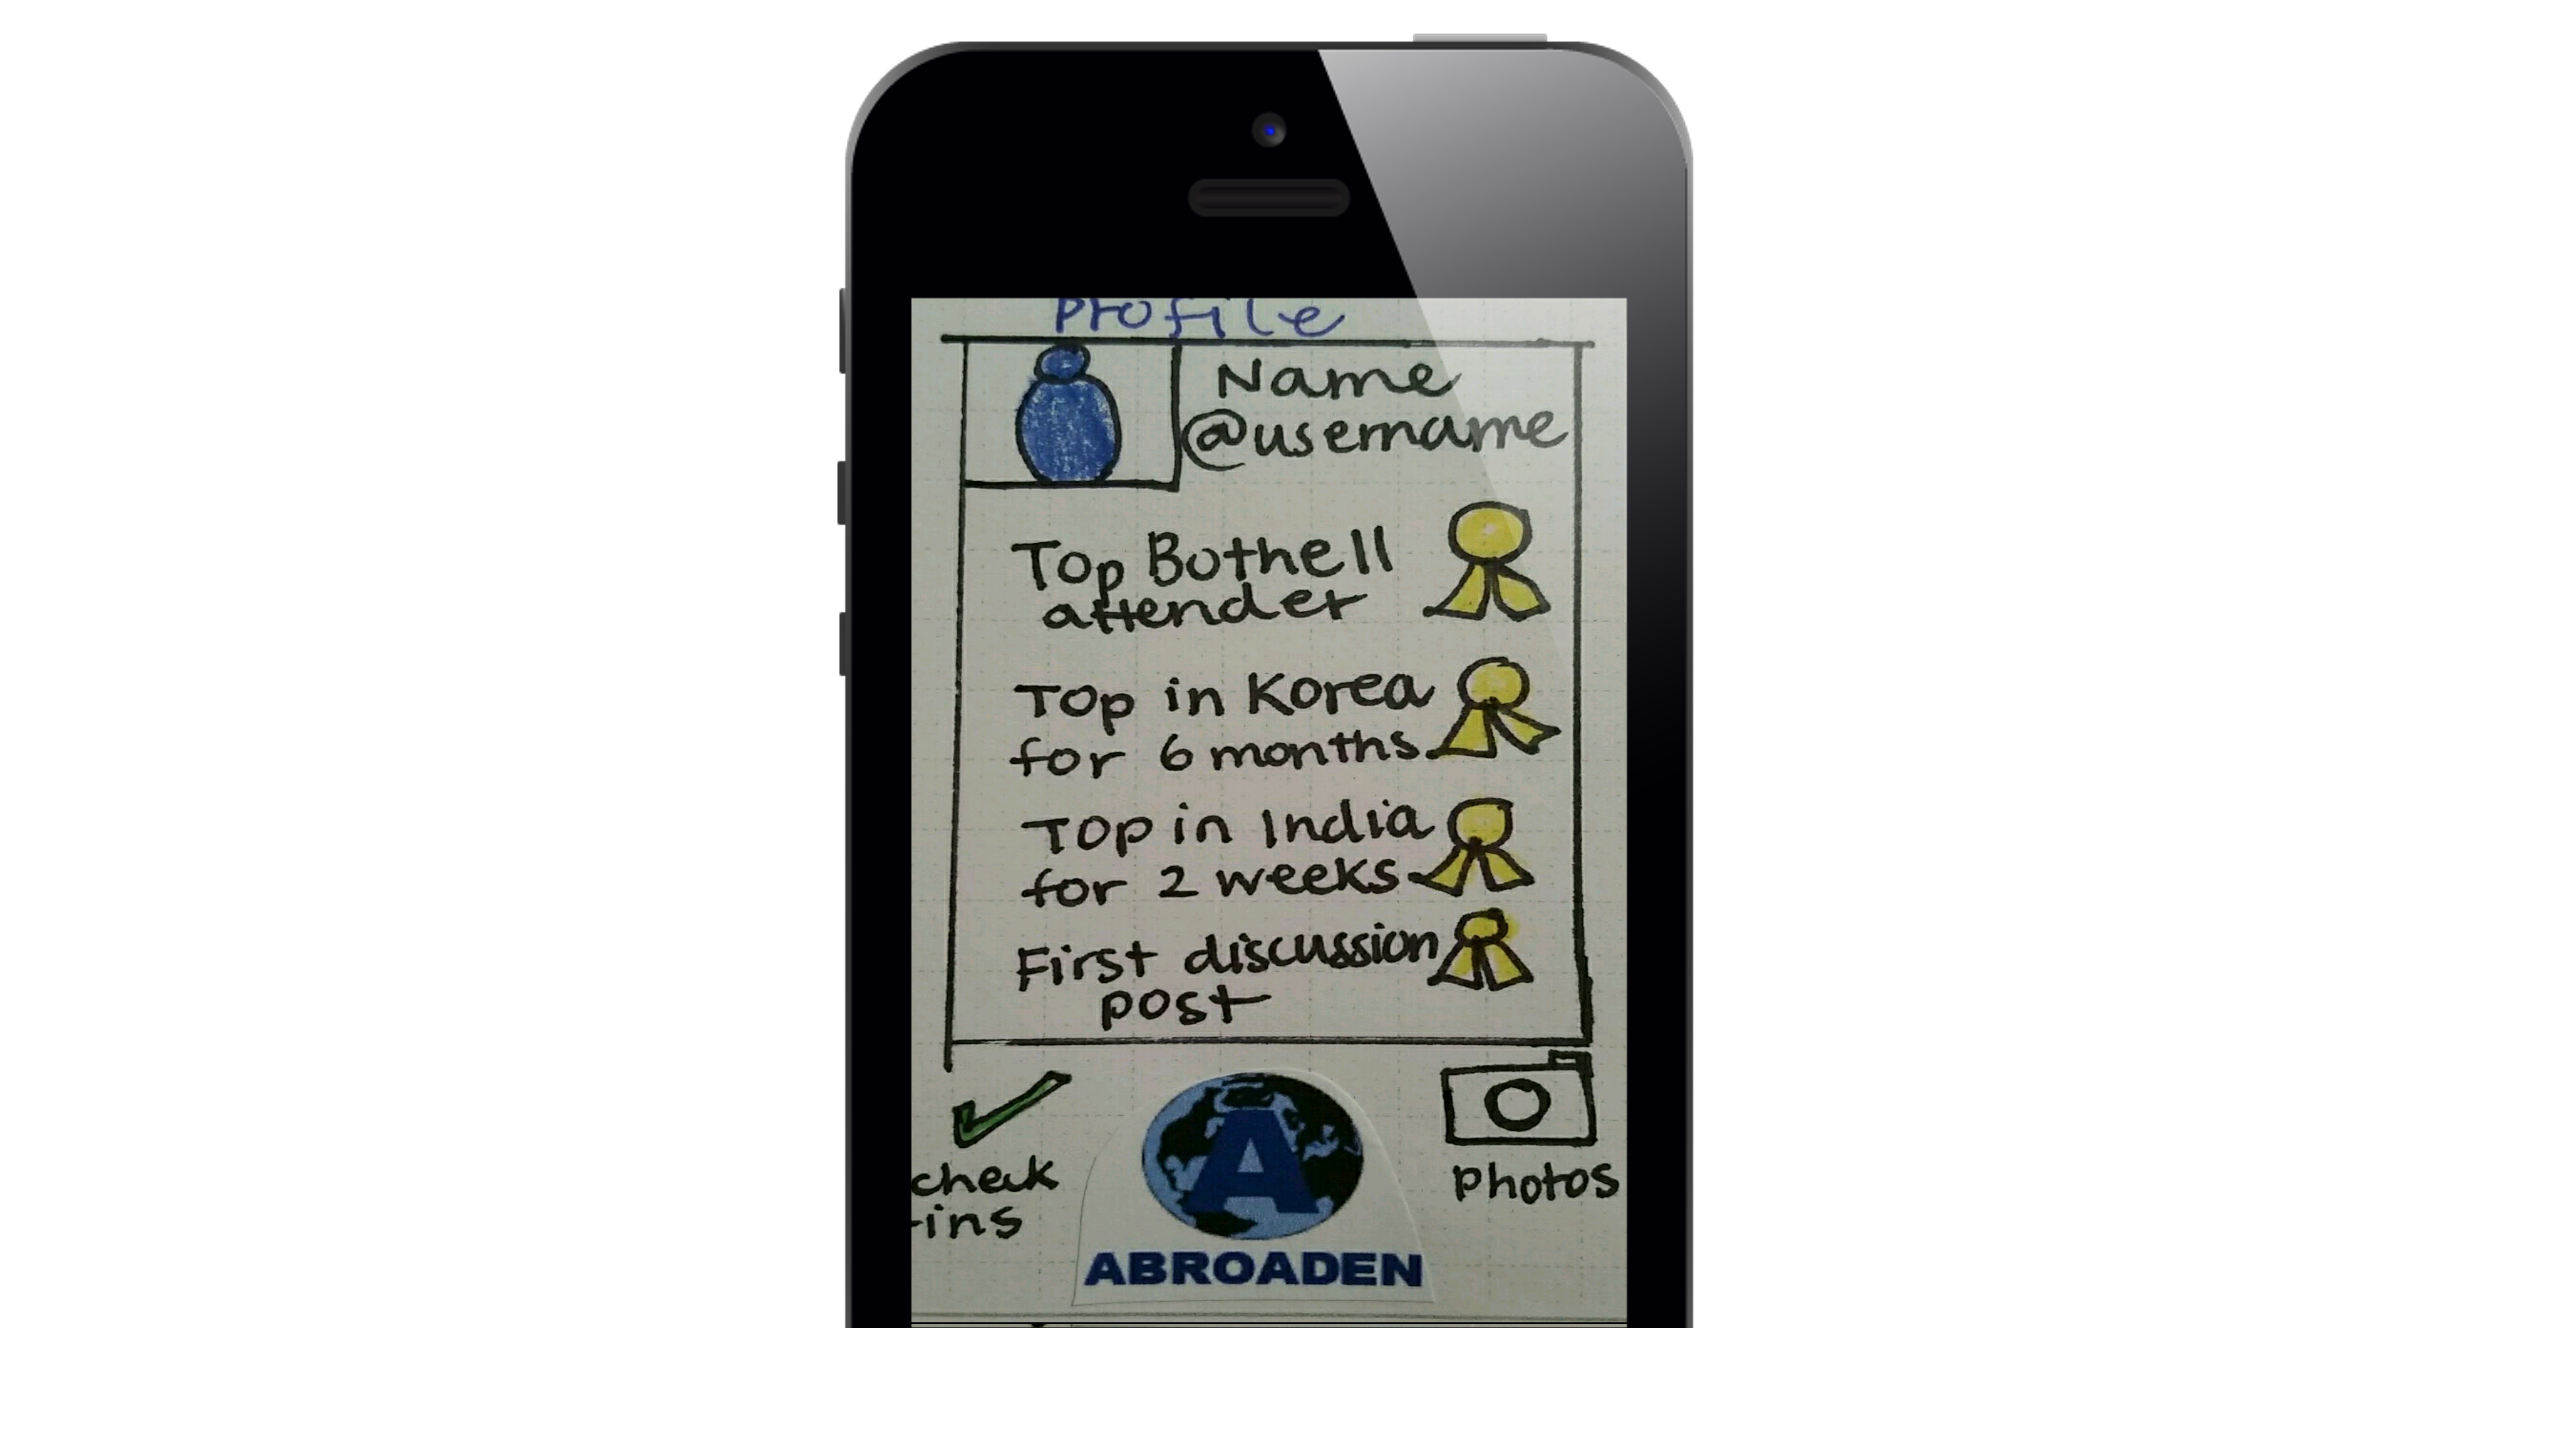 Profile
Name
@username
Top Bothell
attender
Top in Korea
for 6 months
Top in India
for 2 weeks
First discussion
post
check
-ins
A
ABROADEN
photos